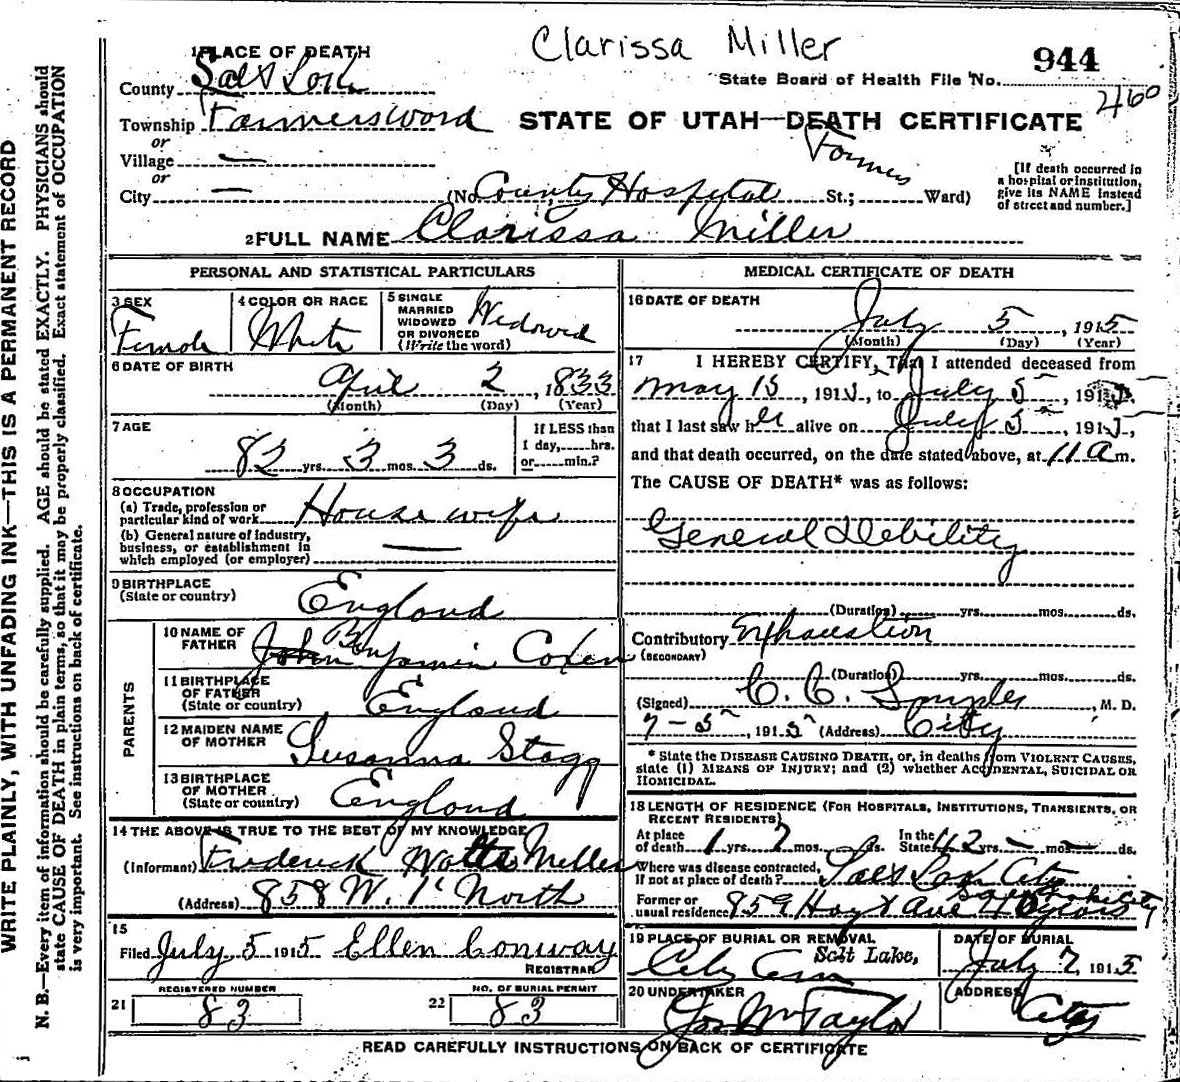 WRITE PLAINLY, WITH UNFADING INK—THIS IS A PERMANENT RECORD
N. B.—Every item of information should be carefully supplied. AGE should be stated EXACTLY. PHYSICIANS should
state CAUSE OF DEATH in plain terms, so that it may be properly classified. Exact statement of OCCUPATION
is very important. See instructions on back of certificate.
Clarissa Miller
944
State Board of Health File No.
2460
1 PLACE OF DEATH
County Salt Lake
Township Farmersword
or
Village —
or
City —
STATE OF UTAH—DEATH CERTIFICATE
(No. County Hospital St.; Farmers Ward)
[If death occurred in
a hospital or institution,
give its NAME instead
of street and number.]
2 FULL NAME Clarissa Miller
PERSONAL AND STATISTICAL PARTICULARS
3 SEX
Female
4 COLOR OR RACE
White
5 SINGLE
MARRIED
WIDOWED
OR DIVORCED
(Write the word)
Widowed
6 DATE OF BIRTH
April 2, 1833
(Month) (Day) (Year)
7 AGE
82 yrs. 3 mos. 3 ds.
If LESS than
1 day, hrs.
or min.?
8 OCCUPATION
(a) Trade, profession or
particular kind of work House wife
(b) General nature of industry,
business, or establishment in
which employed (or employer) —
9 BIRTHPLACE
(State or country) England
PARENTS
10 NAME OF
FATHER John Benjamin Coxen
11 BIRTHPLACE
OF FATHER
(State or country) England
12 MAIDEN NAME
OF MOTHER Susanna Stagg
13 BIRTHPLACE
OF MOTHER
(State or country) England
14 THE ABOVE IS TRUE TO THE BEST OF MY KNOWLEDGE
(Informant) Frederick Watts Miller
(Address) 858 W. 1st North
15
Filed July 5 1915 Ellen Conway
REGISTRAR
21
REGISTERED NUMBER
83
22
NO. OF BURIAL PERMIT
83
MEDICAL CERTIFICATE OF DEATH
16 DATE OF DEATH
July 5, 1915
(Month) (Day) (Year)
17 I HEREBY CERTIFY, That I attended deceased from
May 15, 1915, to July 5, 1915,
that I last saw her alive on July 5, 1915,
and that death occurred, on the date stated above, at 11 a m.
The CAUSE OF DEATH* was as follows:
General Debility
(Duration) yrs. mos. ds.
Contributory Exhaustion
(SECONDARY)
(Duration) yrs. mos. ds.
(Signed) C. C. Snyder, M. D.
7-5, 1915 (Address) City
* State the DISEASE CAUSING DEATH, or, in deaths from VIOLENT CAUSES,
state (1) MEANS OF INJURY; and (2) whether ACCIDENTAL, SUICIDAL OR
HOMICIDAL.
18 LENGTH OF RESIDENCE (FOR HOSPITALS, INSTITUTIONS, TRANSIENTS, OR
RECENT RESIDENTS)
At place
of death 1 yrs. 7 mos. ds.
In the
State 42 yrs. — mos. — ds.
Where was disease contracted,
If not at place of death? Salt Lake City
Former or
usual residence 859 Hoyt Ave
19 PLACE OF BURIAL OR REMOVAL
City Cem Salt Lake,
DATE OF BURIAL
July 7, 1915
20 UNDERTAKER
Jos Wm Taylor
ADDRESS
City
READ CAREFULLY INSTRUCTIONS ON BACK OF CERTIFICATE